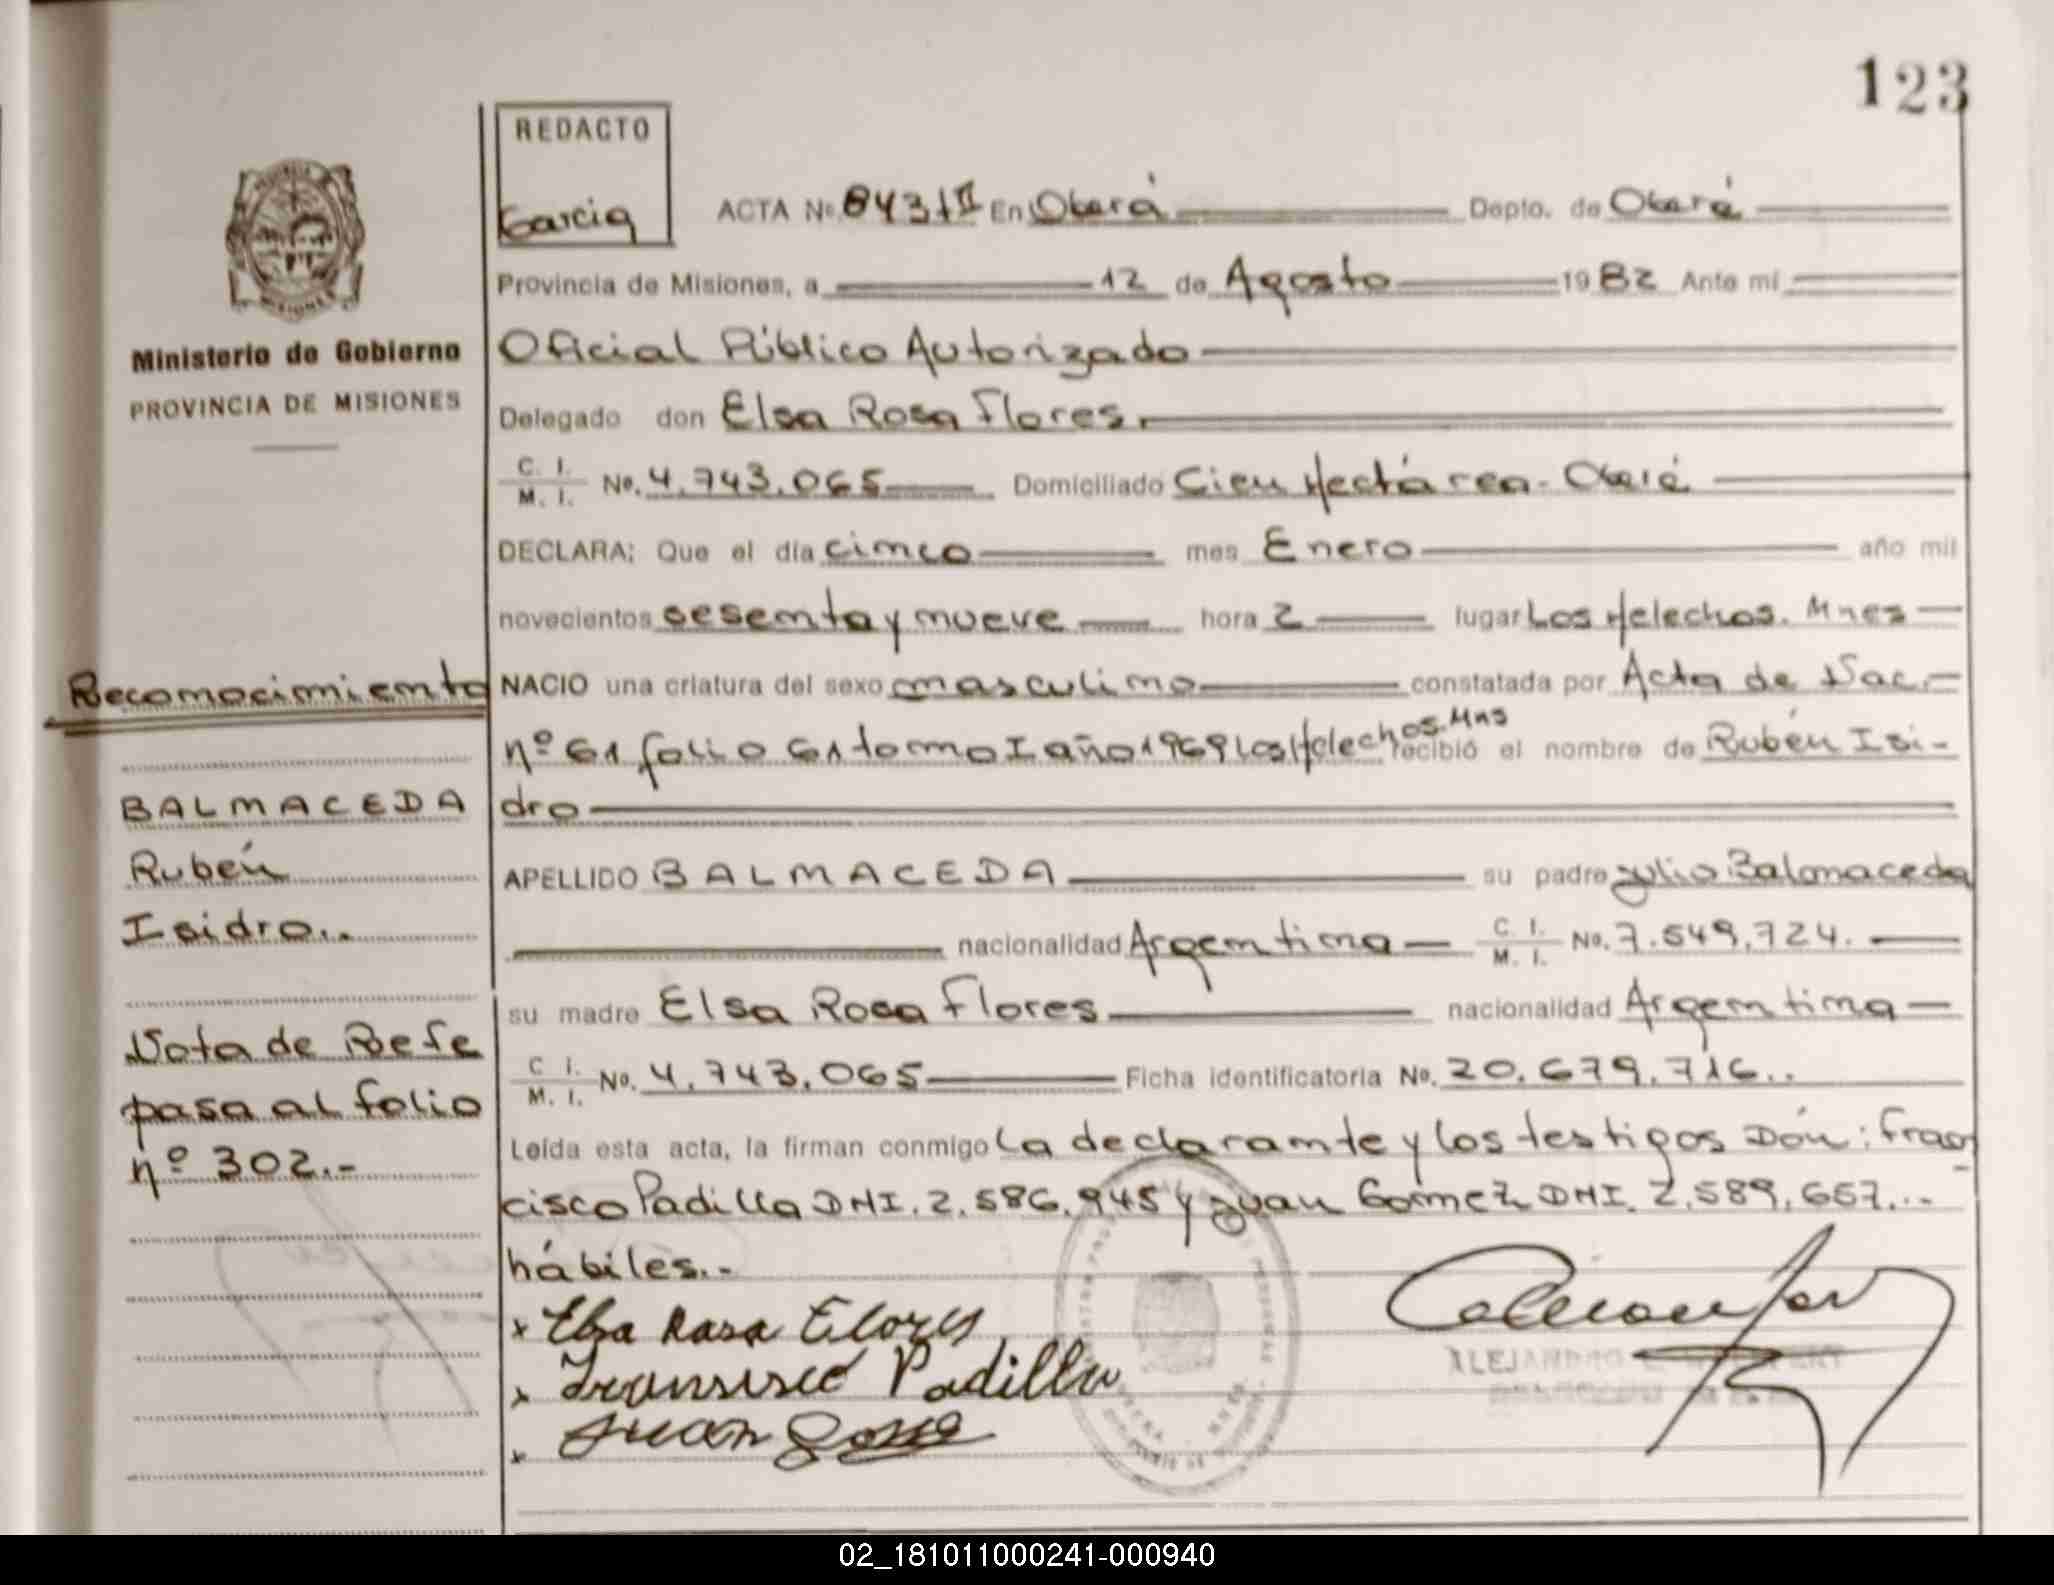 123
REDACTO
Garcia
ACTA No. 8431 II En Oberá Depto. de Oberá
Provincia de Misiones, a 12 de Agosto 1982 Ante mi
Ministerio de Gobierno
PROVINCIA DE MISIONES
Oficial Público Autorizado
Delegado don Elsa Rosa Flores.
C. I. M. I. No. 4.743.065 Domiciliado Cien Hectárea - Oberá
DECLARA: Que el día cinco mes Enero año mil
novecientos sesenta y nueve hora 2 lugar Los Helechos. Mnes
Reconocimiento
NACIO una criatura del sexo masculino constatada por Acta de Nac.
nº 61 folio 61 tomo I año 1969 Los Helechos. Mns recibió el nombre de Rubén Isi-
dro
BALMACEDA
Rubén
Isidro..
APELLIDO BALMACEDA su padre Julio Balmaceda
nacionalidad Argentina C. I. M. I. No. 7.549.724.
su madre Elsa Rosa Flores nacionalidad Argentina
C. I. M. I. No. 4.743.065 Ficha identificatoria No. 20.679.716..
Nota de Refe
pasa al folio
nº 302.-
Leída esta acta, la firman conmigo La declarante y los testigos Dón: Fran
cisco Padilla DNI. 2.586.945 y Juan Gomez DNI. 2.589.657...
hábiles.-
x Elsa Rosa Flores
x Francisco Padilla
x Juan Gomez
ALEJANDRO
02_181011000241-000940